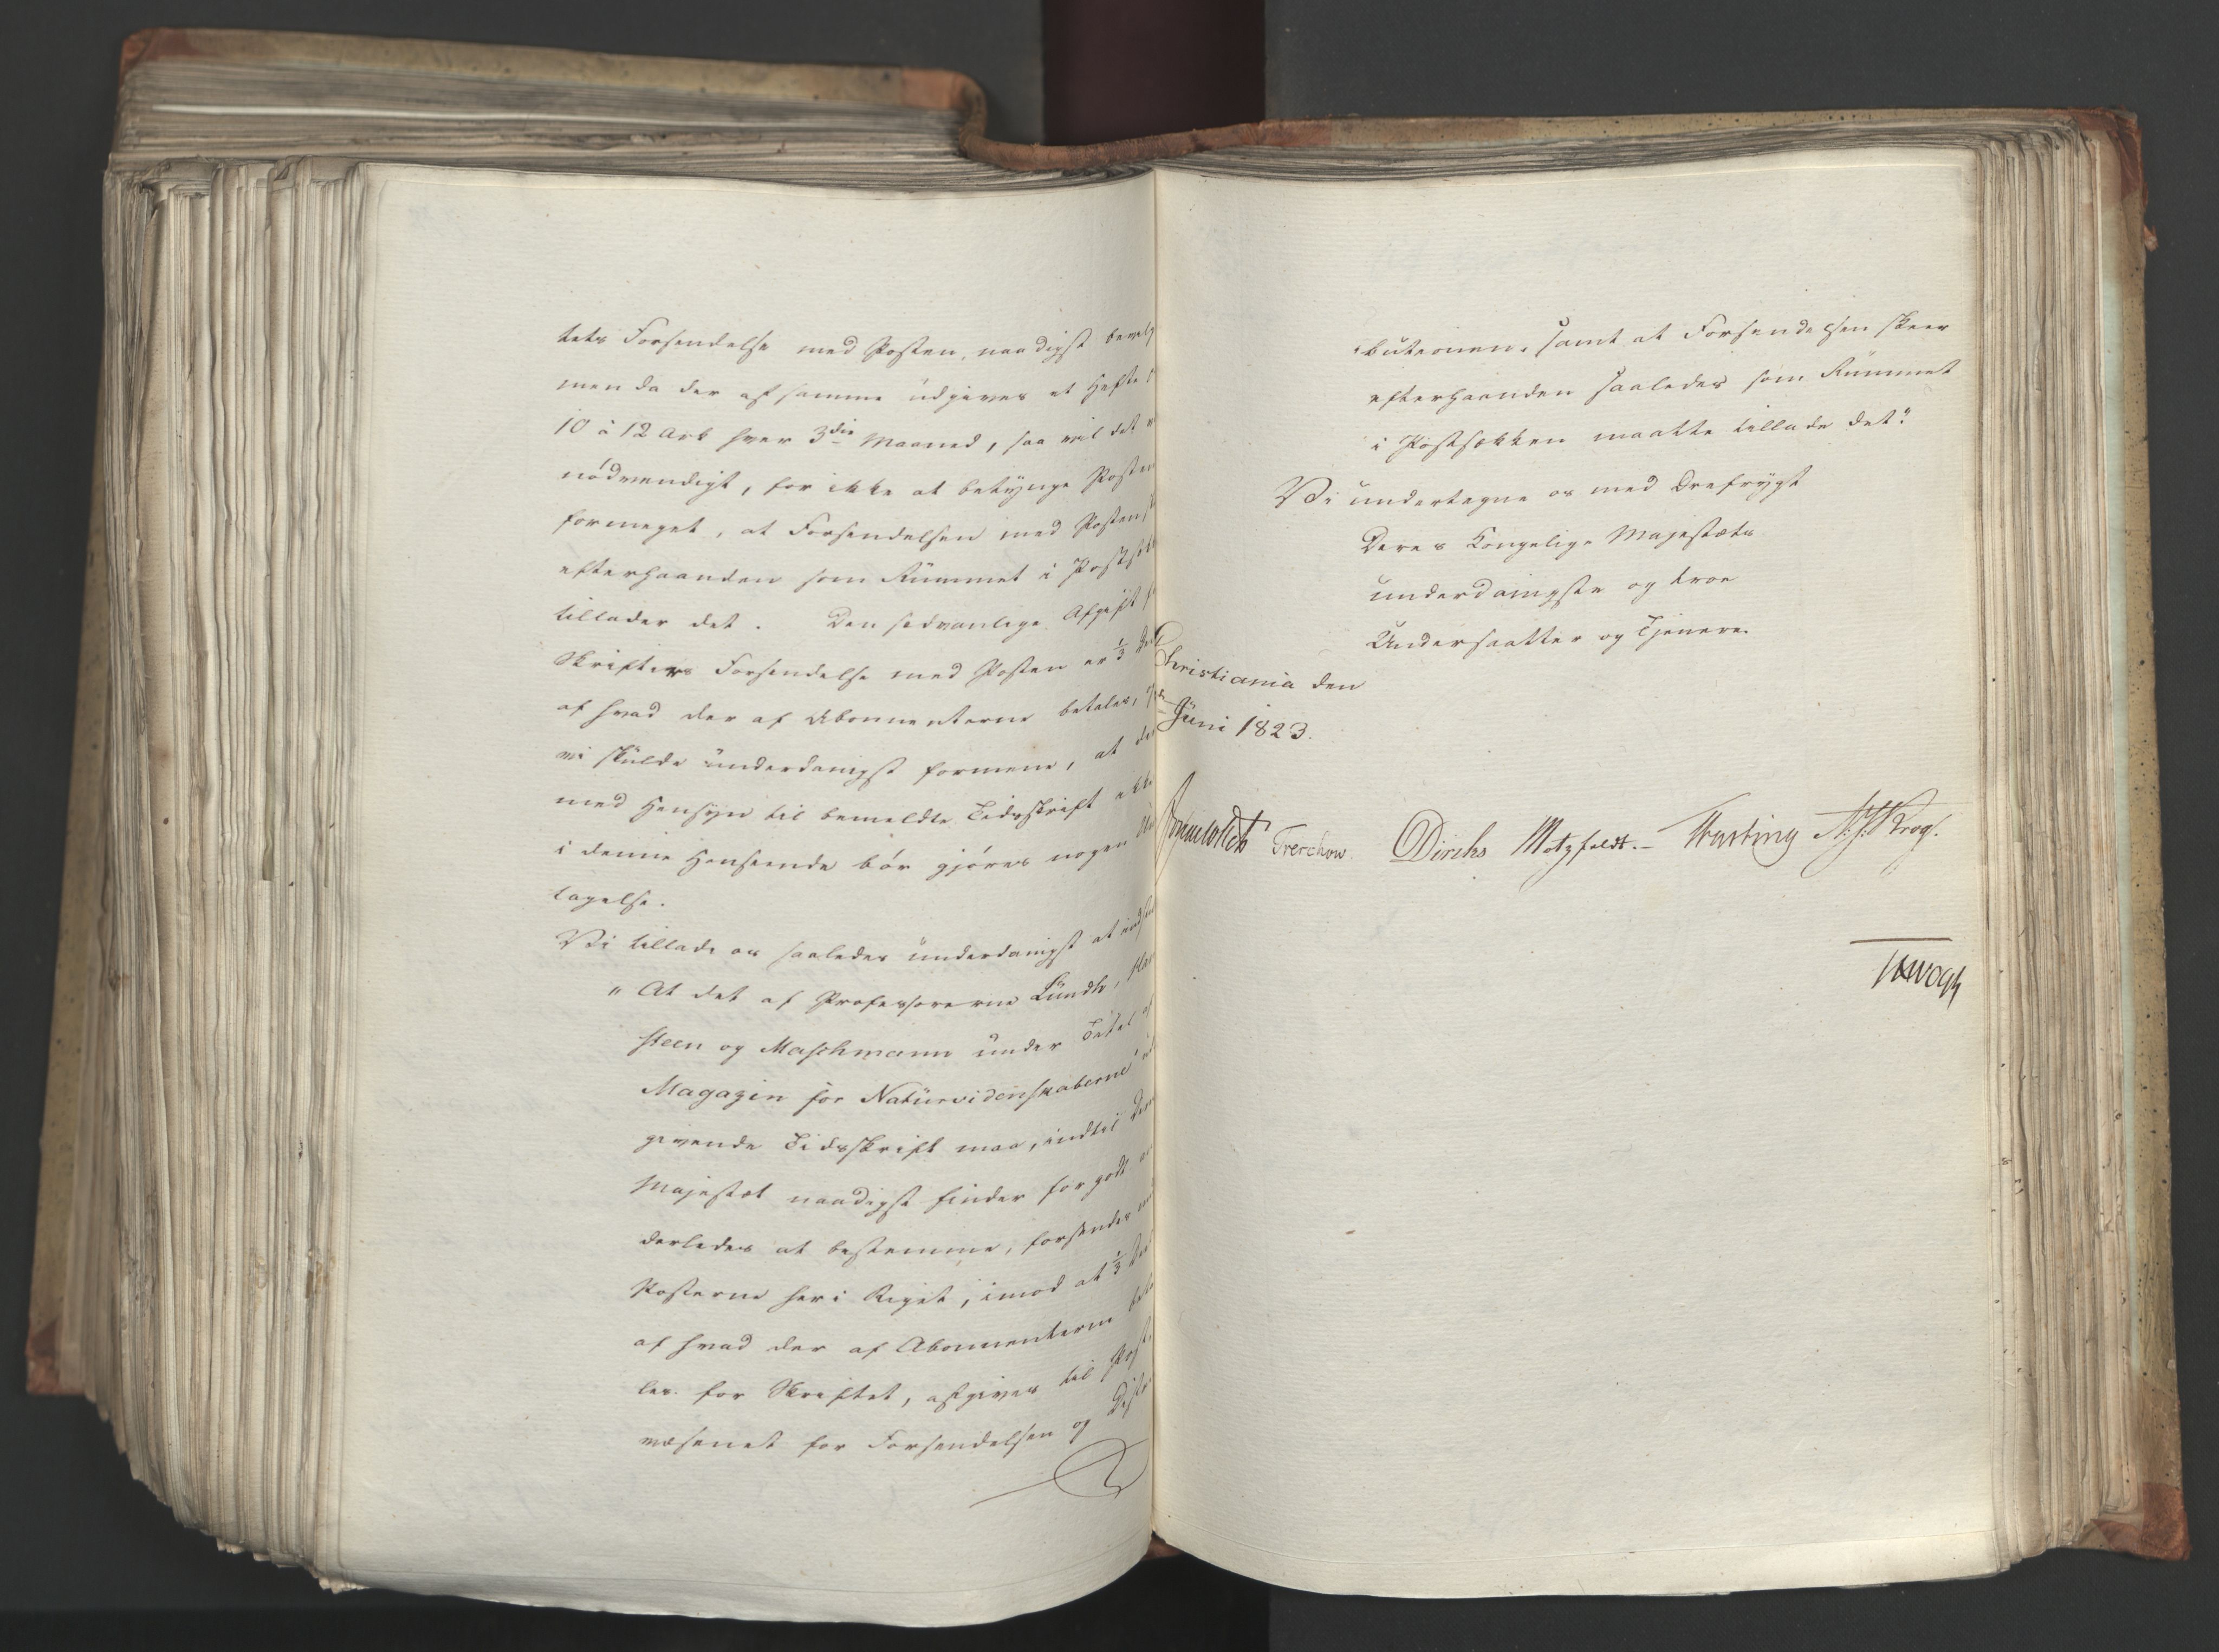 tets Forsendelse med Posten, naadigst bevilg
men da der af samme udgives et Hefte
10 à 12 Ark hver 3die Maaned, saa vil det
nödvendigt, for ikke at betynge Posten
formeget, at Forsendelsen med Posten
efterhaanden som Rummet i
tillader det. Den sedvanlige Afgift
Skrifters Forsendelse med Posten er 1/3
af hvad der af Abonnenterne betales,
vi skulde underdanigst formene, at
med Hensyn til bemeldte Tidsskrift ikke
i denne Henseende bör gjöres nogen
tagelse.
Vi tillade os saaledes underdanigst at
" At det af Professorerne Lundh,
steen og Maschmann under Titel af
Magazin for Naturvidenskaberne
givende Tidsskrift maa, indtil
Majestæt naadigst finder for godt
derledes at bestemme, forsendes
Posterne her i Riget, imod at 1/3
af hvad der af Abonnenterne
les for Skriftet, afgives til Post
væsenet for Forsendelsen og Distri
butionen, samt at Forsendelsen skeer
efterhaanden saaledes som Rummet
i Postsækken maatte tillade det."
Vi undertegne os med Ærefrygt
Deres Kongelige Majestæts
underdanigste og troe
Undersaatter og Tjenere.
Christiania den
Juni 1823.
Sommerhielm Treschow. Diriks Motzfeldt. Fasting Krog.
Vogt